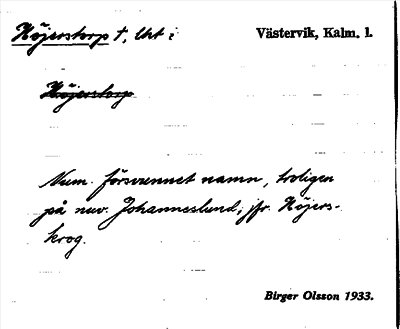 Höjerstorp †, Urt :
Västervik, Kalm. l.
Höjerstorp
Num. försvunnet namn, troligen
på nuv. Johanneslund; jfr. Höjers-
krog.
Birger Olsson 1933.